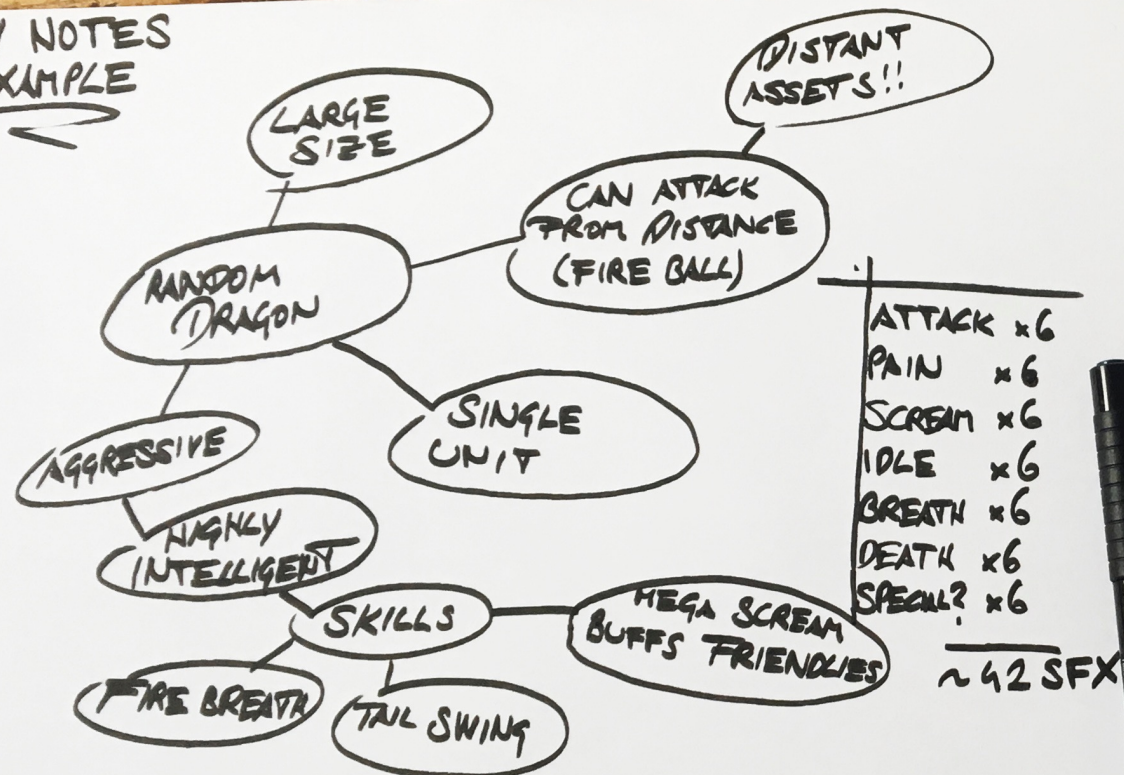 NOTES
XAMPLE
LARGE
SIZE
DISTANT
ASSETS!!
CAN ATTACK
FROM DISTANCE
(FIRE BALL)
RANDOM
DRAGON
SINGLE
UNIT
AGGRESSIVE
HIGHLY
INTELLIGENT
SKILLS
MEGA SCREAM
BUFFS FRIENDLIES
FIRE BREATH
TAIL SWING
ATTACK x6
PAIN x6
SCREAM x6
IDLE x6
BREATH x6
DEATH x6
SPECIAL? x6
~42 SFX